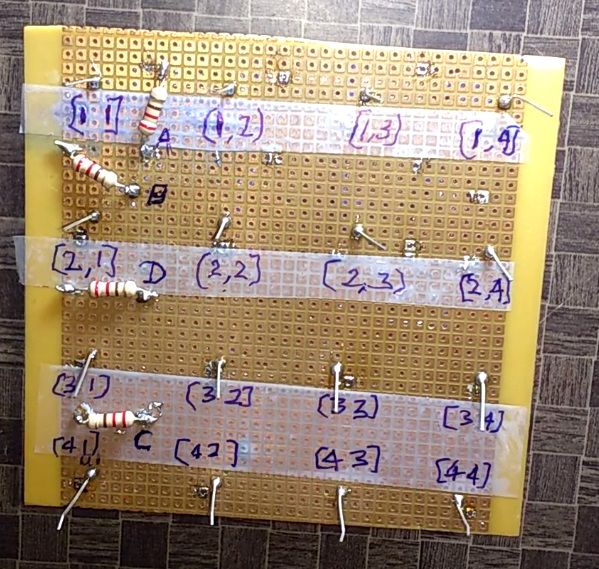 [1 1] A (1,2) [1,3) [1,4]
B
[2,1] D (2,2] [2,3] [2,4]
[3 1] [3 2] [3 3] [3 4]
[4 1] C [4 2] [4 3] [4 4]